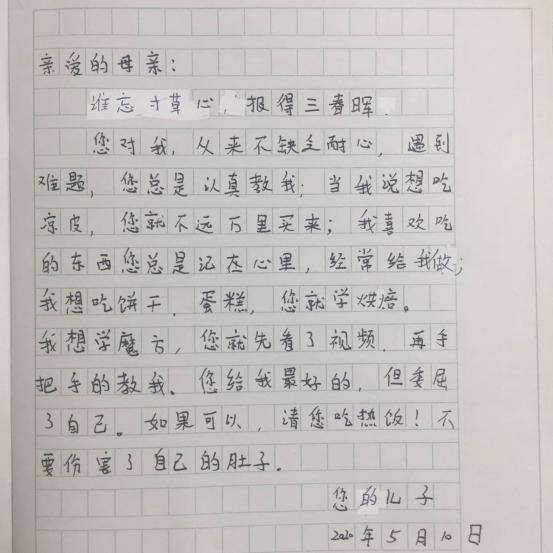 亲爱的母亲:
谁忘寸草心,报得三春晖.
您对我,从来不缺乏耐心,遇到
难题,您总是认真教我;当我说想吃
凉皮,您就不远万里买来;我喜欢吃
的东西您总是记在心里,经常给我做;
我想吃饼干、蛋糕,您就学烘焙。
我想学魔方,您就先看了视频,再手
把手的教我、您给我最好的,但委屈
了自己。如果可以,请您吃热饭!不
要伤害了自己的肚子。
您的儿子
2020年5月10日